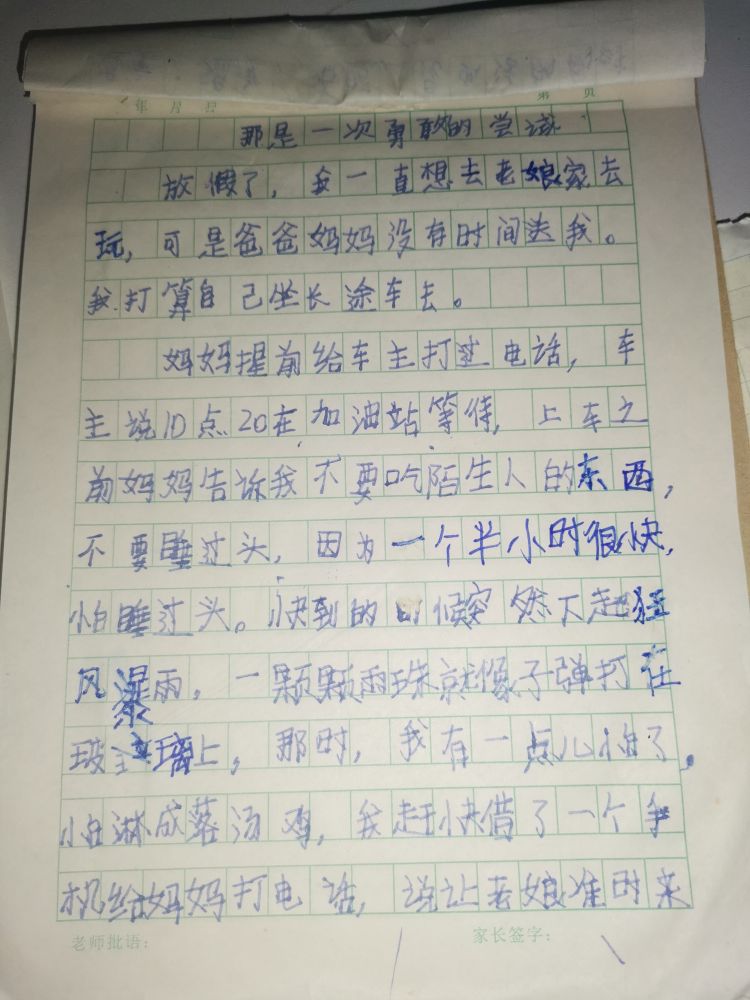 年 月 日
第 页
那是一次勇敢的尝试
放假了，我一直想去老娘家去
玩，可是爸爸妈妈没有时间送我。
我打算自己坐长途车去。
妈妈提前给车主打过电话，车
主说10点20在加油站等待，上车之
前妈妈告诉我不要吃陌生人的东西，
不要睡过头，因为一个半小时很快，
怕睡过头。快到的时候突然下起狂
风暴雨，一颗颗雨珠就像子弹打在
玻璃上，那时，我有一点儿怕了，
怕淋成落汤鸡，我赶快借了一个手
机给妈妈打电话，说让老娘准时来
老师批语：
家长签字：